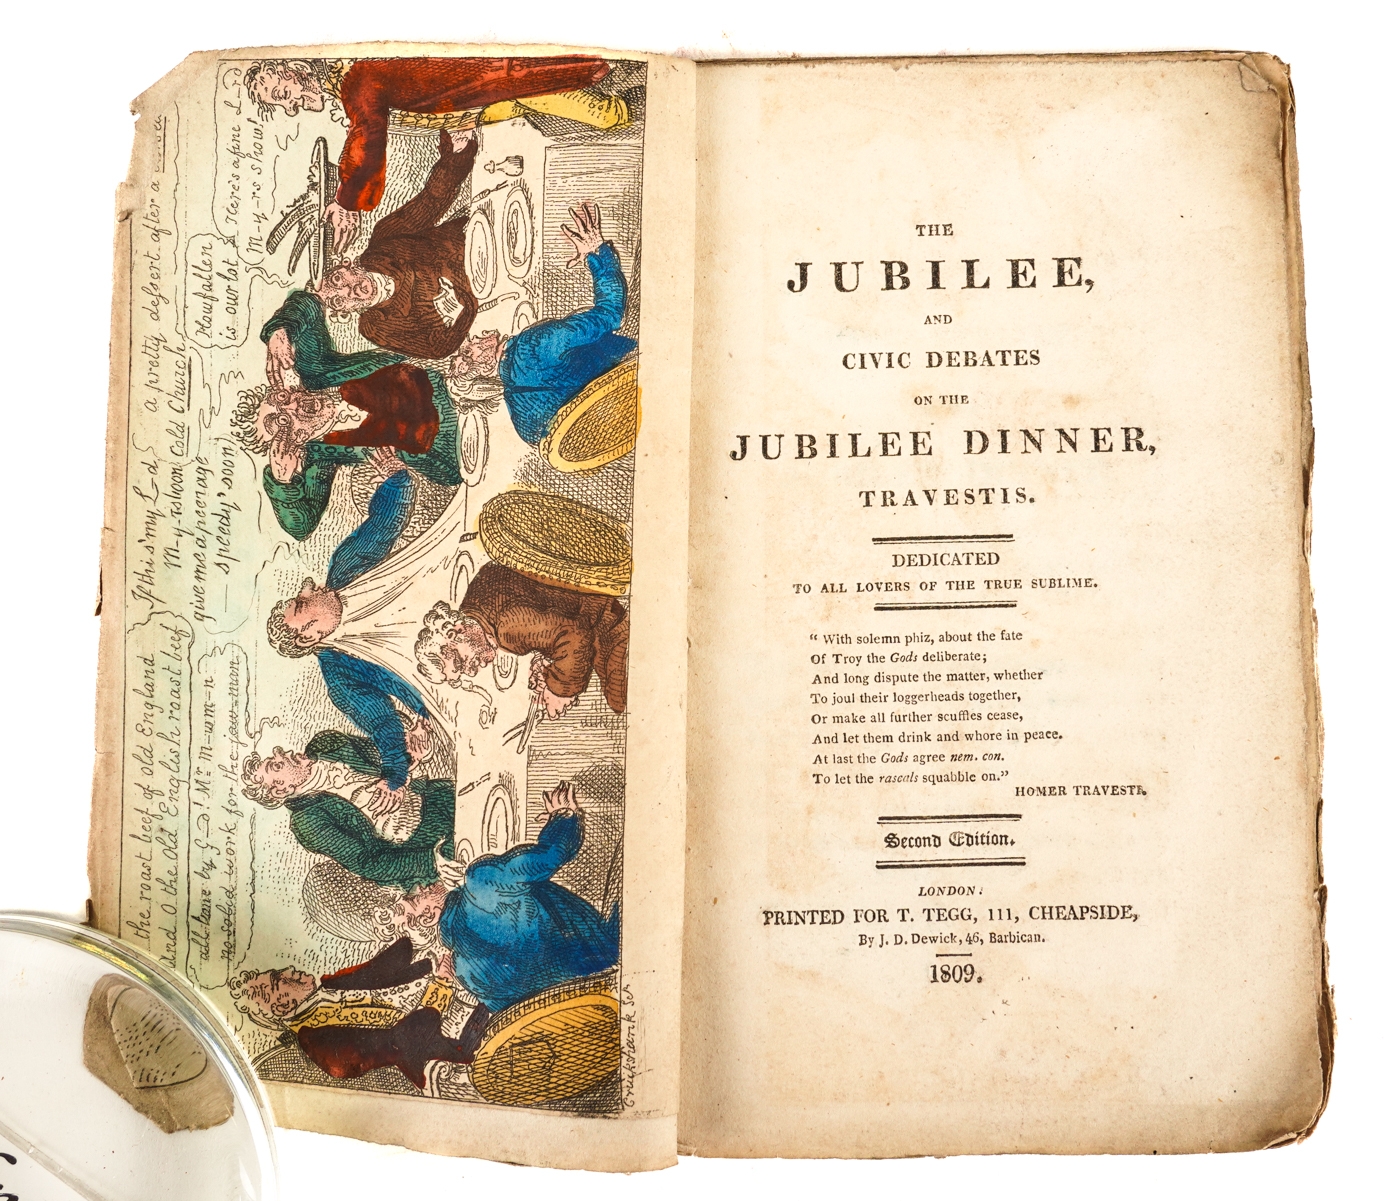 the roast beef of old England
And O the old English roast beef
If this' my L-d
M-y-rs how
a pretty desert after a
Cold Church
give me a peerage
speedy' soon
How fallen
is our lot
Here's a fine L-d
M-y-rs show!
all-bone by G-d! Mr. M-um-n
no solid work for the jaw-man
Cruikshank Sct.
THE
JUBILEE,
AND
CIVIC DEBATES
ON THE
JUBILEE DINNER,
TRAVESTIS.
DEDICATED
TO ALL LOVERS OF THE TRUE SUBLIME.
“ With solemn phiz, about the fate
Of Troy the Gods deliberate;
And long dispute the matter, whether
To joul their loggerheads together,
Or make all further scuffles cease,
And let them drink and whore in peace.
At last the Gods agree nem. con.
To let the rascals squabble on.”
HOMER TRAVESTI.
Second Edition.
LONDON:
PRINTED FOR T. TEGG, 111, CHEAPSIDE,
By J. D. Dewick, 46, Barbican.
1809.